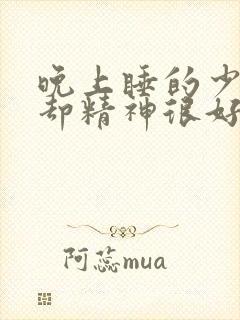 晚上睡的少
却精神很好
阿蕊mua